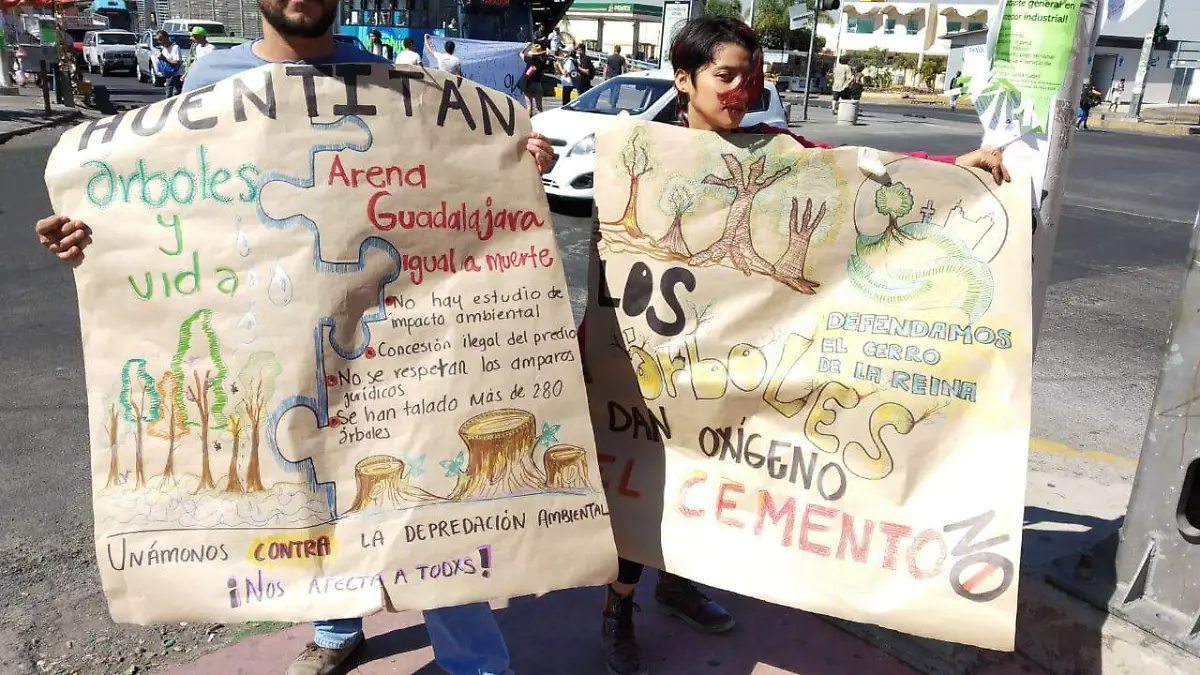 HUENTITÁN
árboles
y
vida
Arena
Guadalajara
igual a muerte
No hay estudio de
impacto ambiental
Concesión ilegal del predio
No se respetan los amparos
jurídicos
Se han talado más de 280
árboles
UNÁMONOS CONTRA LA DEPREDACIÓN AMBIENTAL
¡NOS AFECTA A TODXS!
LOS
árboLES
DAN OXÍGENO
EL CEMENTO NO
DEFENDAMOS
EL CERRO
DE LA REINA
PEMEX
general en
sector industrial!